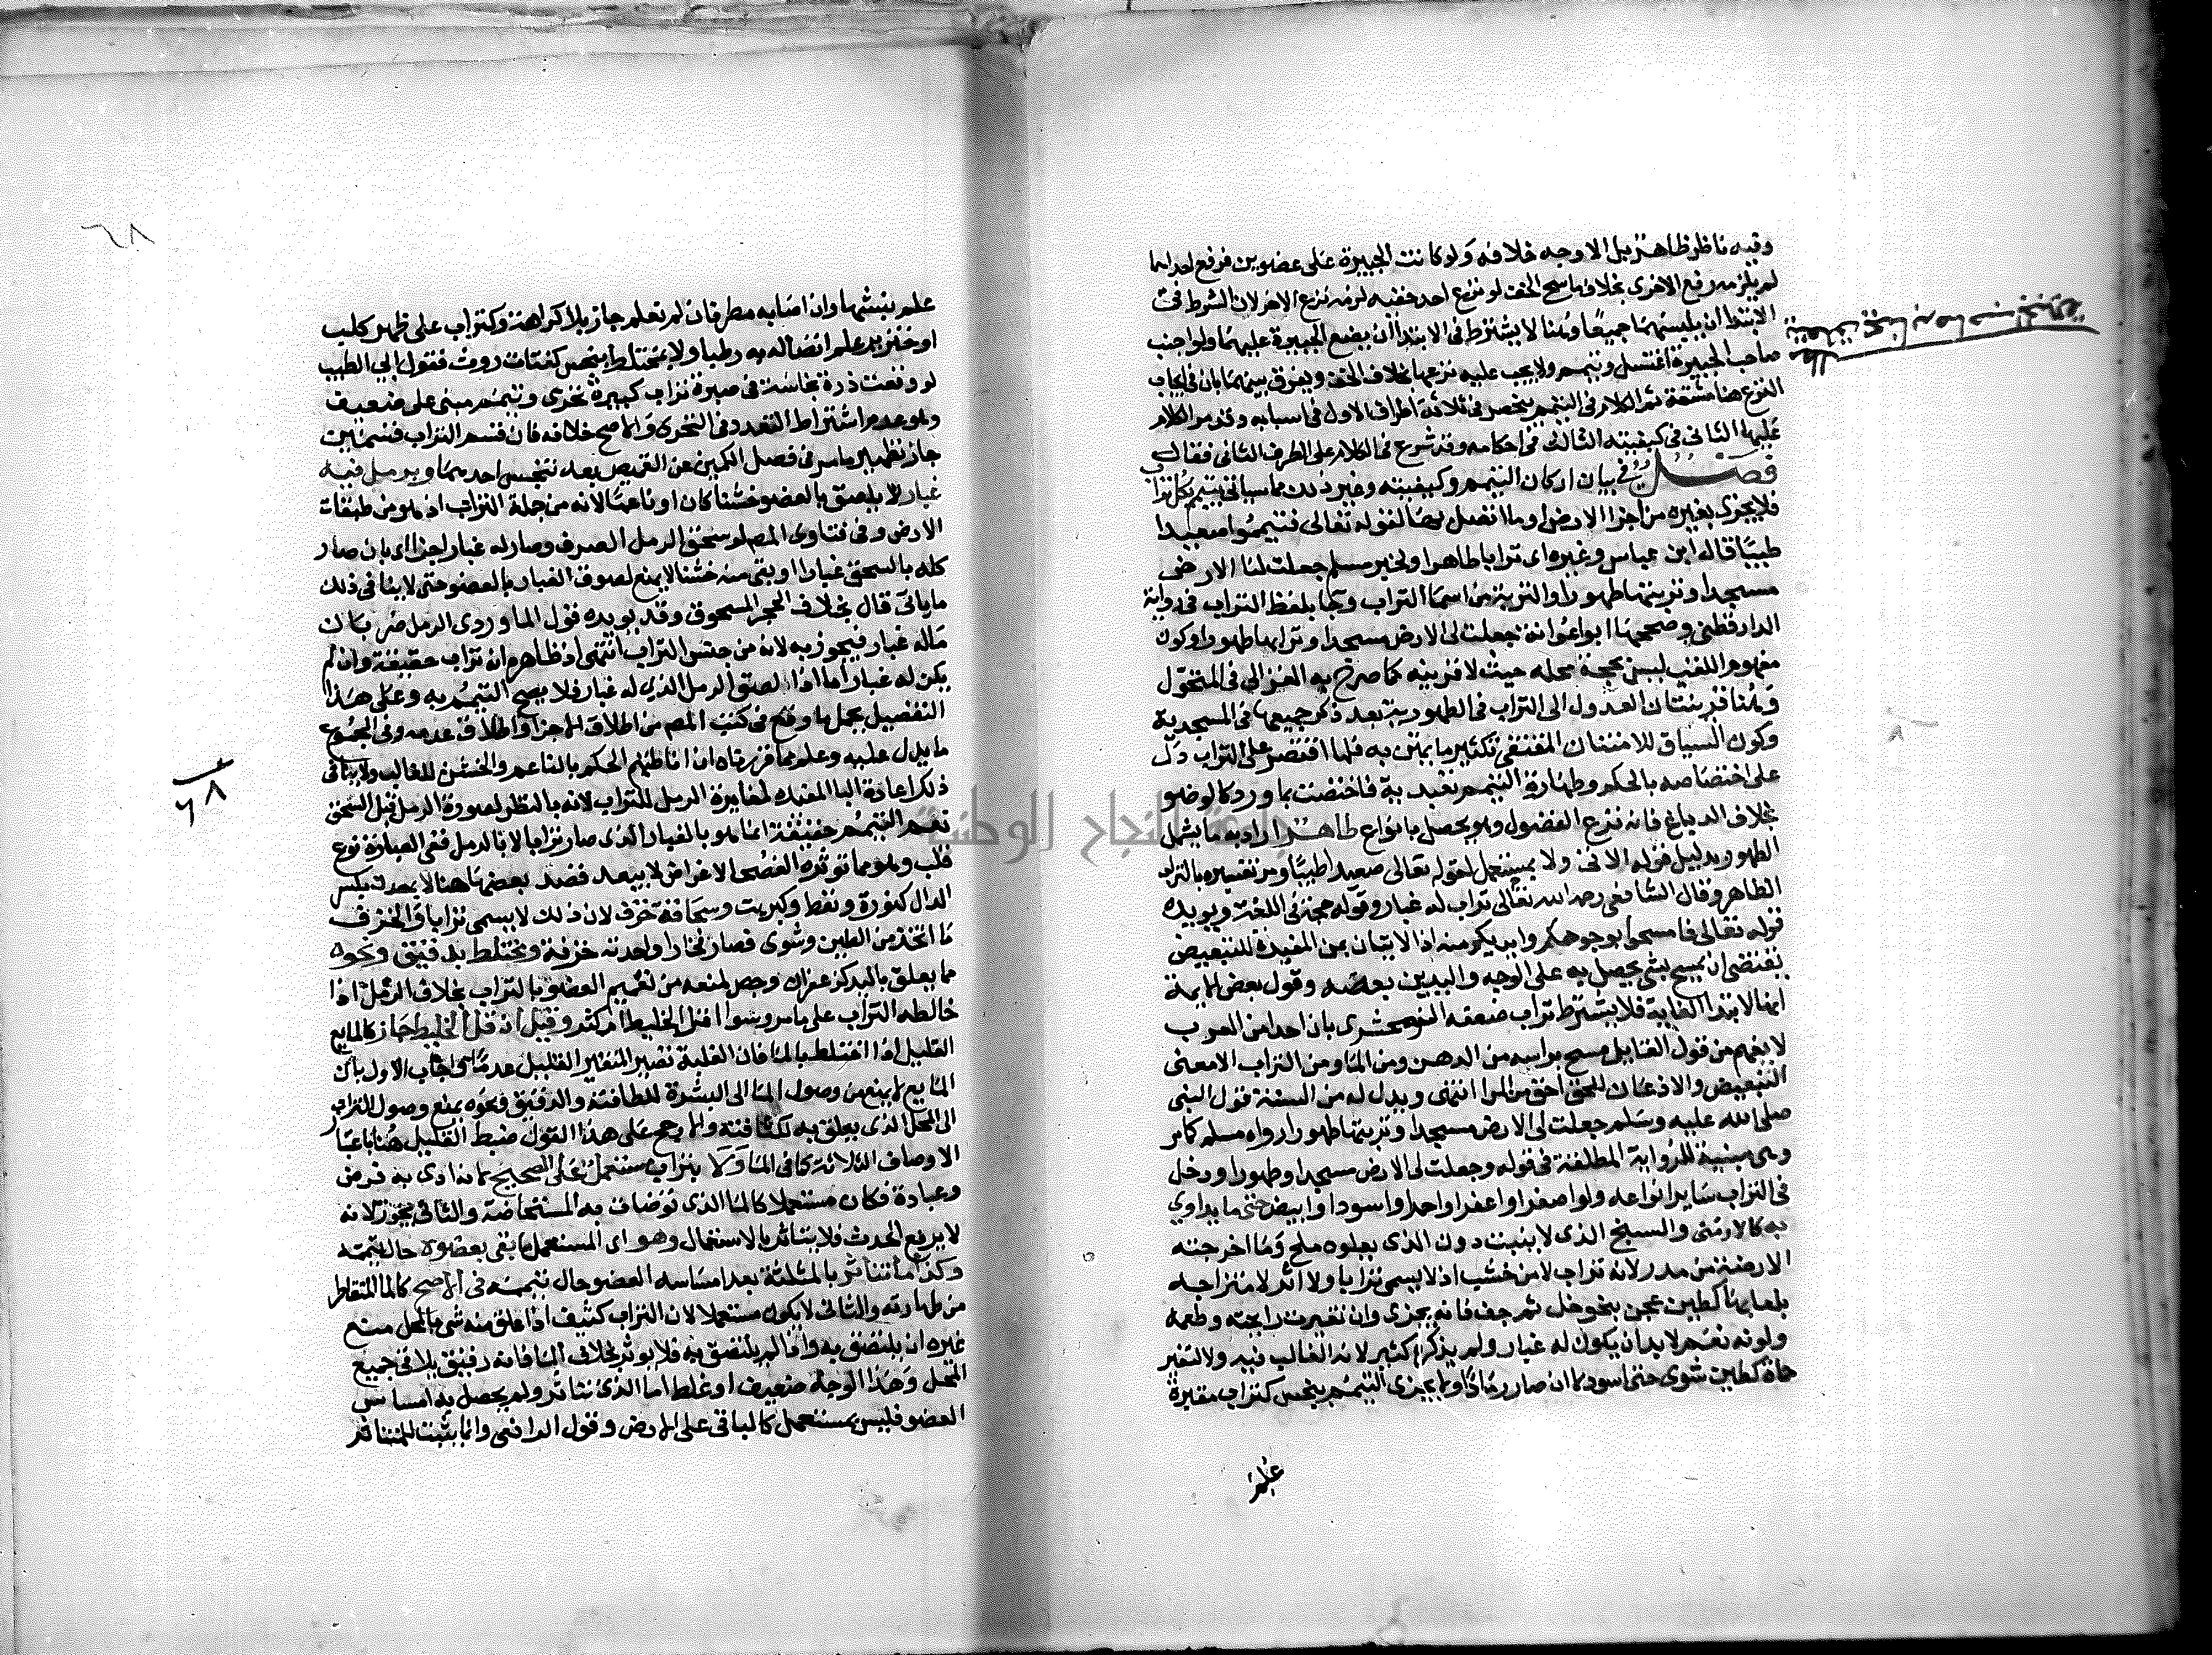 وفيه ناظر ظاهر بل الاوجه خلافه ولو كانت الجبيرة على عضوين فرفع احداهما
لم يلزمه رفع الاخرى بخلاف ماسح الخف لو نزع احد خفيه لزمه نزع الاخر لان الشرط في
الابتدا ان يلبسهما جميعا وهنا لا يشترط في الابتدا ان يضع الجبيرة عليهما ولو اجنب
صاحب الجبيرة اغتسل وتيمم ولا يجب عليه نزعها بخلاف الخف ويفرق بينهما بان في ايجاب
النزع هنا مشقة ثم الكلام في التيمم ينحصر في ثلاثة اطراف الاول في اسبابه وقد مر الكلام
عليها الثاني في كيفيته الثالث في احكامه وقد شرع في الكلام على الطرف الثاني فقال
فصل في بيان اركان التيمم وكيفيته وغير ذلك مما سياتي يتيمم بكل تراب
فلا يجزي بغيره من اجزا الارض وما اتصل بها لقوله تعالى فتيمموا صعيدا
طيبا قال ابن عباس وغيره اى ترابا طاهرا ولخبر مسلم جعلت لنا الارض
مسجدا وتربتها طهورا والتربة من اسما التراب وبما بلفظ التراب في رواية
الدارقطني وصححها ابو عوانة جعلت لي الارض مسجدا وترابها طهورا وكون
مفهوم اللقب ليس بحجة محله حيث لا قرينة كما صرح به الغزالي في المنخول
وهنا قرينتان العدول الى التراب في الطهورية بعد ذكر جميعها في المسجدية
وكون السياق للامتنان المقتضي تكثير ما يمتن به فلما اقتصر على التراب دل
على اختصاصه بالحكم وطهارة التيمم تعبدية فاختصت بما ورد كالوضو
بخلاف الدباغ فانه نزع الفضول وهو يحصل بانواع طاهر اراد به ما يشمل
الطهور بدليل قوله الاتي ولا بمستعمل لقوله تعالى صعيدا طيبا ومر تفسيره بالتراب
الطاهر وقال الشافعي رحمه الله تعالى تراب له غبار وقوله حجة في اللغة ويويده
قوله تعالى فامسحوا بوجوهكم وايديكم منه اذ الاتيان بمن المفيدة للتبعيض
تقتضي ان يمسح بشي يحصل به على الوجه واليدين بعضه وقول بعض الايمة
انها لابتدا الغاية فلا يشترط تراب ضعفه الزمخشري بان احدا من العرب
لا يفهم من قول القايل مسح براسه من الدهن ومن الما ومن التراب الا معنى
التبعيض والاذعان للحق احق من المرا انتهى ويدل له من السنة قول النبي
صلى الله عليه وسلم جعلت لي الارض مسجدا وتربتها طهورا رواه مسلم كما مر
وهي مبينة للرواية المطلقة في قوله وجعلت لي الارض مسجدا وطهورا ودخل
في التراب ساير انواعه ولو اصفرا واعفرا واحمرا واسودا وابيض حتى ما يداوي
به كالارمني والسبخ الذي لا ينبت دون الذي يعلوه ملح وما اخرجته
الارضة من مدر لانه تراب لا من خشب اذ لا يسمى ترابا ولا اثر لامتزاجه
بلعابها كطين عجن بنحو خل ثم جف فانه يجزي وان تغيرت رايحته وطعمه
ولونه نعم لا بد ان يكون له غبار ولم يذكر كثير لانه الغالب فيه ولا لتغير
حماة كطين شوي حتى اسود لا ان صار رمادا ولا يجزي التيمم بنجس كتراب مقبرة
علم
علم نبشها وان اصابه مطر فان لم تعلم جاز بلا كراهة وكتراب على ظهر كلب
او خنزير علم اتصاله به رطبا ولا بمختلط بنجس كفتات روث فقول ابي الطيب
لو وقعت ذرة نجاسة في صبرة تراب كبيرة تحرى وتيمم مبني على ضعيف
وهو عدم اشتراط التعدد في التحري والاصح خلافه فان قسم التراب قسمين
جاز نظير ما مر في فصل الكمين عن القميص بعد تنجس احدهما وبرمل فيه
غبار لا يلصق بالعضو خشنا كان او ناعما لانه من جملة التراب اذ هو من طبقات
الارض وفي فتاوى المصـ لو سحق الرمل الصرف وصار له غبار اجزا اى بان صار
كله بالسحق غبارا او بقي منه خشنا لا يمنع لصوق الغبار بالعضو حتى لا ينافي ذلك
ما ياتي قال بخلاف الحجر المسحوق وقد يويده قول الماوردي الرمل ضربان
ماله غبار فيجوز به لانه من جنس التراب انتهى اذ ظاهره انه تراب حقيقة وان لم
يكن له غبار اما اذا لصق الرمل الذي له غبار فلا يصح التيمم به وعلى هذا
التفصيل يحمل ما وقع في كتب المصـ من اطلاق الاجزا واطلاق عدمه وفي المجموع
ما يدل عليه وعلم مما قررناه ان اناطتهم الحكم بالناعم والخشن للغالب ولا ينافي
ذلك اعادة البا المفيده لمغايرة الرمل للتراب لانه بالنظر لصورة الرمل قبل السحق
نعم التيمم حقيقة انما هو بالغبار الذي صار ترابا لا بالرمل ففي العبارة نوع
قلب وهو مما توثره الفصحا لاغراض لا يبعد قصد بعضها هنا لا بمعدن بكسر
الدال كنورة ونفط وكبريت وسحاقة خزف لان ذلك لا يسمى ترابا والخزف
ما اتخذ من الطين وشوي فصار فخارا واحدته خزفة ومختلط بدقيق ونحوه
مما يعلق باليد كزعفران وجص لمنعه من تعميم العضو بالتراب بخلاف الرمل اذا
خالطه التراب على ما مر وسوا اقل الخليط ام كثر وقيل ان قل الخليط جاز كالمايع
القليل اذا اختلط بالما فان الغلبة تصير المتغير القليل عدما واجاب الاول بان
المايع لا يمنع من وصول الما الى البشرة للطافته والدقيق ونحوه يمنع وصول التراب
الى المحل الذي يعلق به لكثافته والمرجع على هذا القول ضبط القليل هنا باعتبار
الاوصاف الثلاثة كما في الما ولا بتراب مستعمل على الصحيح لانه ادى به فرض
وعبادة فكان مستعملا كالما الذي توضات به المستحاضة والثاني يجوز لانه
لا يرفع الحدث فلا يتاثر بالاستعمال وهو اى المستعمل ما بقي بعضوه حالة تيممه
وكذا ما تناثر بالمثلثة بعد امساسه العضو حال تيممه في الاصح كالما المتقاطر
من طهارته والثاني لا يكون مستعملا لان التراب كثيف اذا علق منه شي بالمحل منع
غيره ان يلتصق به واذا لم يلتصق به فلا يوثر بخلاف الما فانه رقيق يلاقي جميع
المحل وهذا الوجه ضعيف او غلط اما الذي تناثر ولم يحصل به امساس
العضو فليس بمستعمل كالباقي على الارض وقول الرافعي وانما يثبت للمتناثر
٦٨
٦٨
جامعة النجاح الوطنية